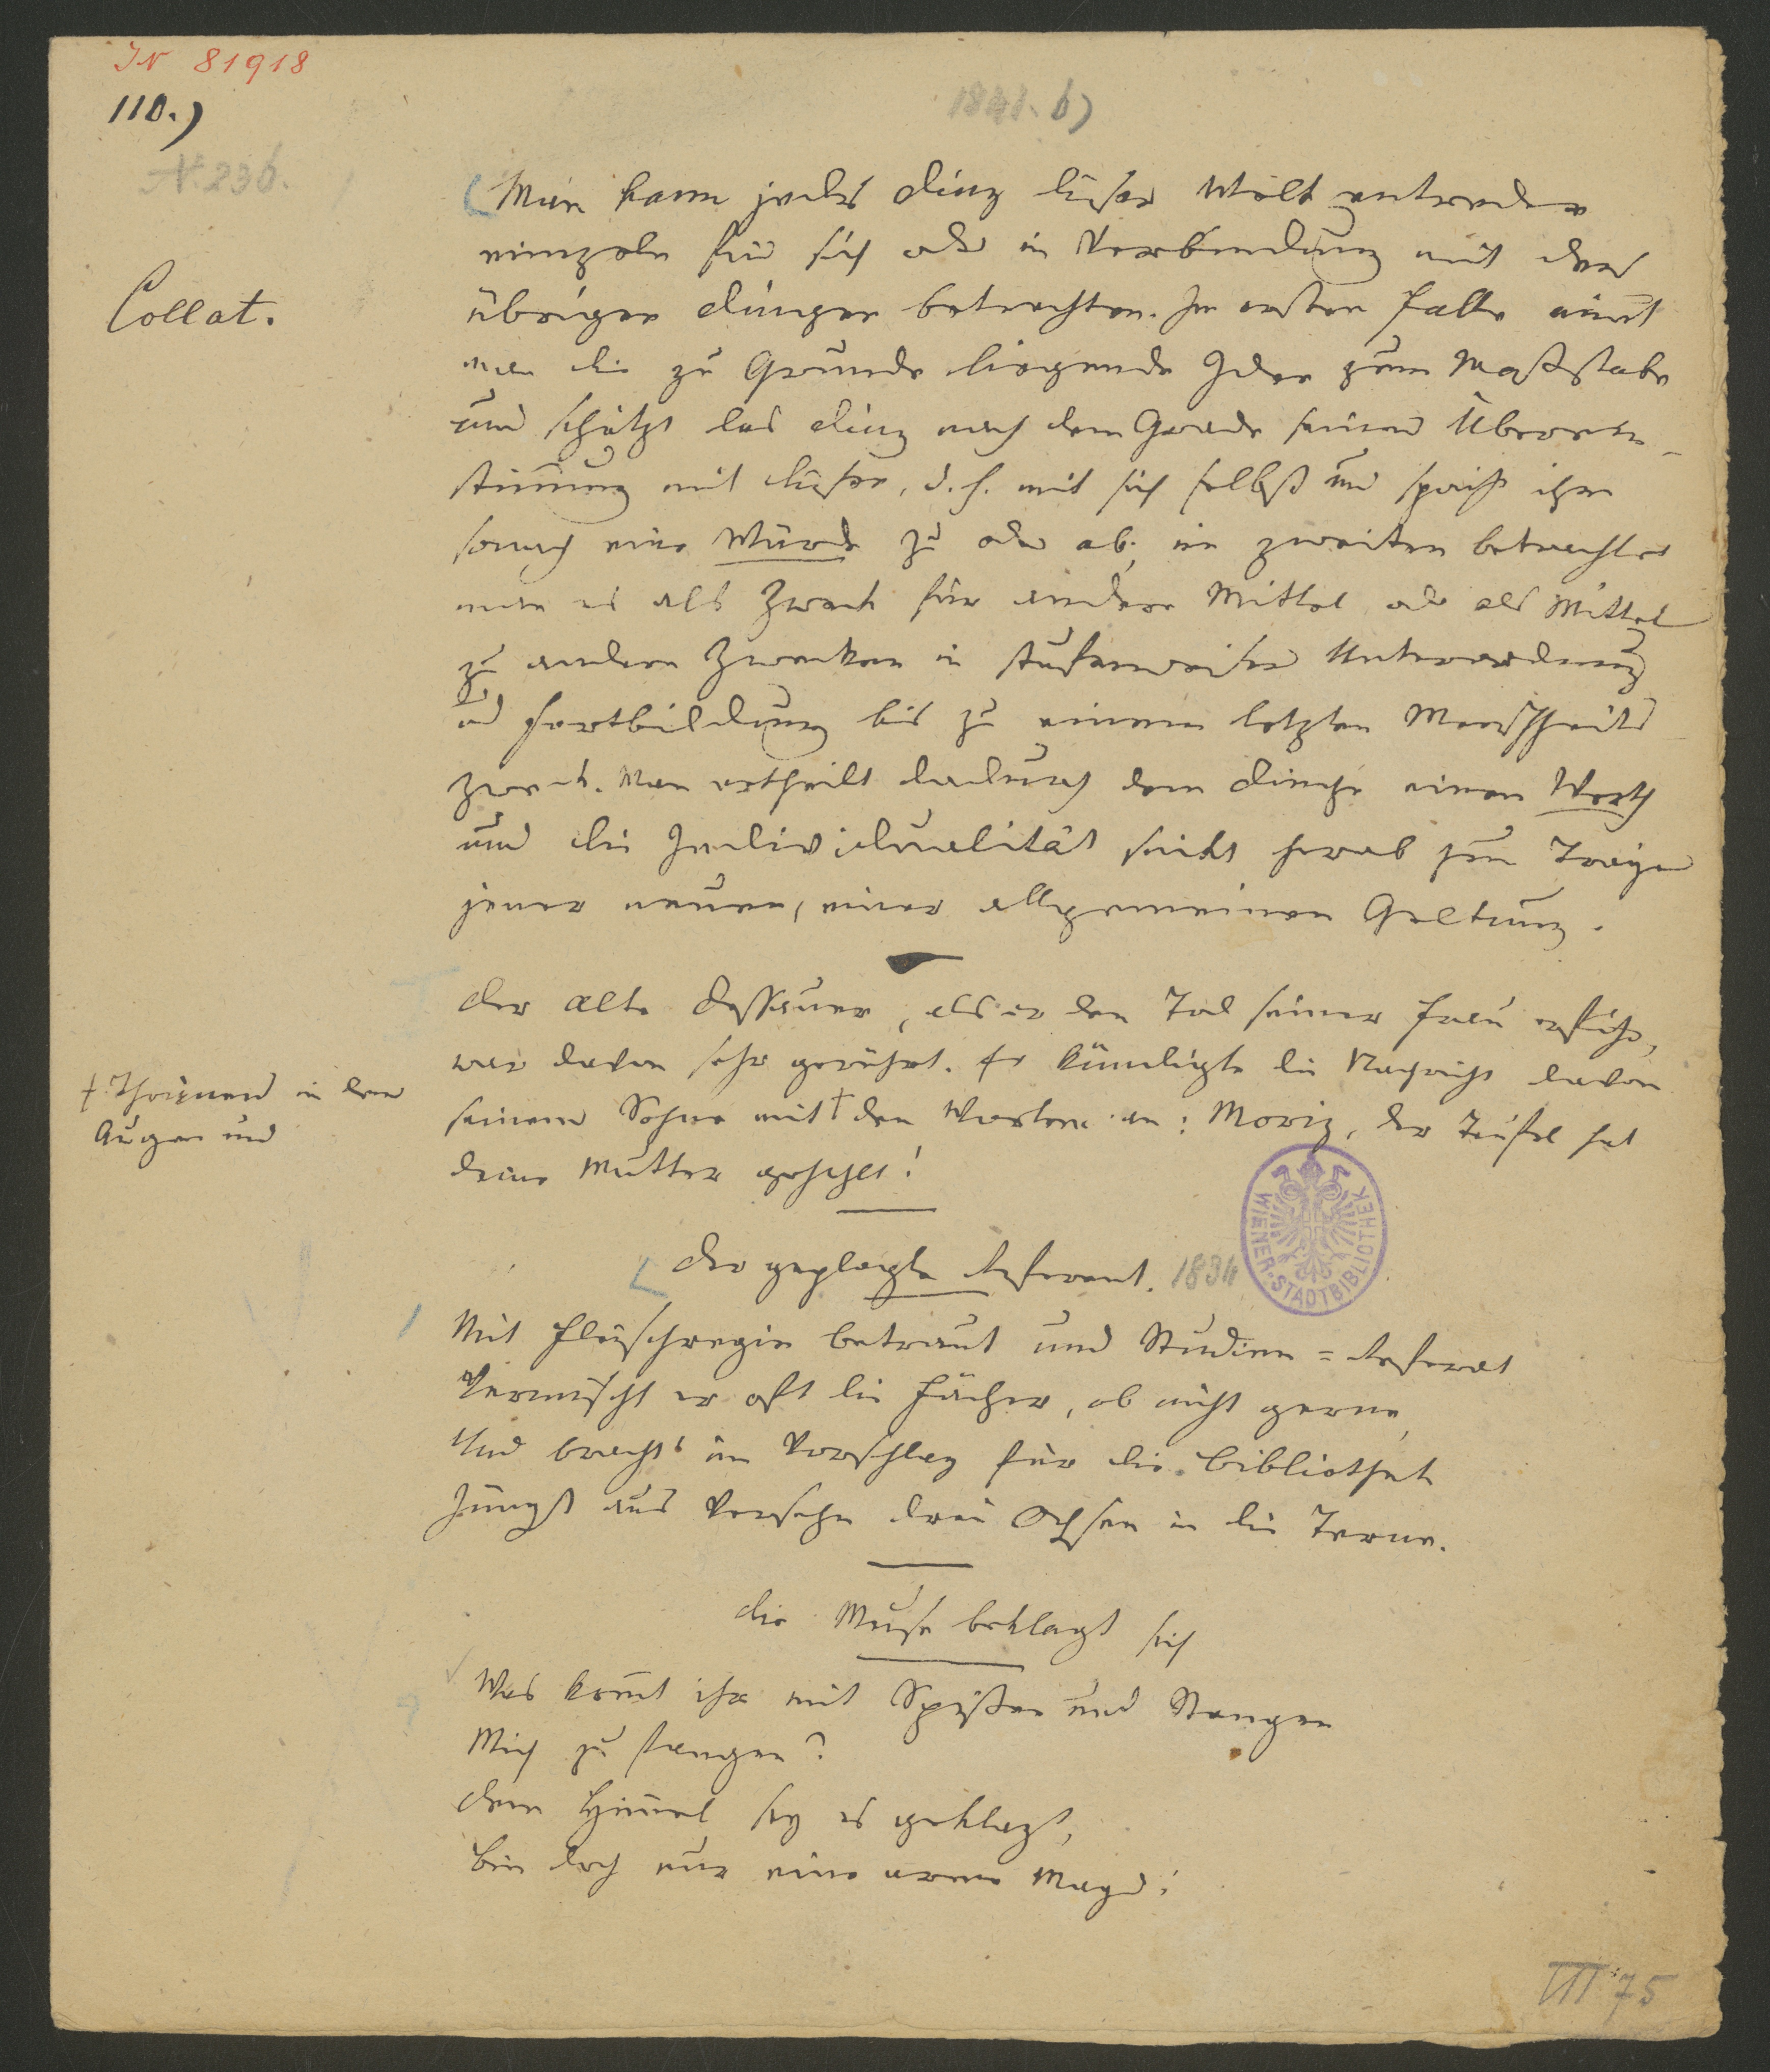 IN 81918
110.)
1841. b)
N. 236.
Collat.
Man kann jedes Ding dieser Welt entweder
einzeln für sich oder in Verbindung mit den
übrigen Dingen betrachten. Im ersten Falle nim̄t
man die zu Grunde liegende Idee zum Maßstabe
und schätzt das Ding nach dem Grade seiner Überein-
stim̄ung mit dieser, d. h. mit sich selbst und spricht ihm
sonach eine Würde zu oder ab; im zweiten betrachtet
man es als Zweck für andere Mittel oder als Mittel
zu andern Zwecken in stufenweiser Unterordnung
und Fortbildung bis zu einem letzten Menschheits
zweck. Man ertheilt dadurch dem Dinge einen Werth
und die Individualität sinkt herab zum Träger
jener neuen, einer allgemeinen Geltung.
Der alte Dessauer, als er den Tod seiner Frau erfuhr,
war davon sehr gerührt. Er kündigte die Nachricht davon
seinem Sohne mit † den Worten an: Moriz, der Teufel hat
deine Mutter geholt!
† Thränen in den
Augen und
Der geplagte Referent. 1834
Mit Fleischregie betraut und Studien = Referat
Vermischt er oft die Fächer, ob nicht gerne,
Und bracht' im Vorschlag für die Bibliothek
Jüngst aus Versehn drei Ochsen in die Terne.
WIENER-STADTBIBLIOTHEK
Die Muse beklagt sich
Was kom̄t ihr mit Spießen und Stangen
Mich zu fangen?
Dem Him̄el sey es geklagt,
Bin doch nur eine arme Magd!
III 75